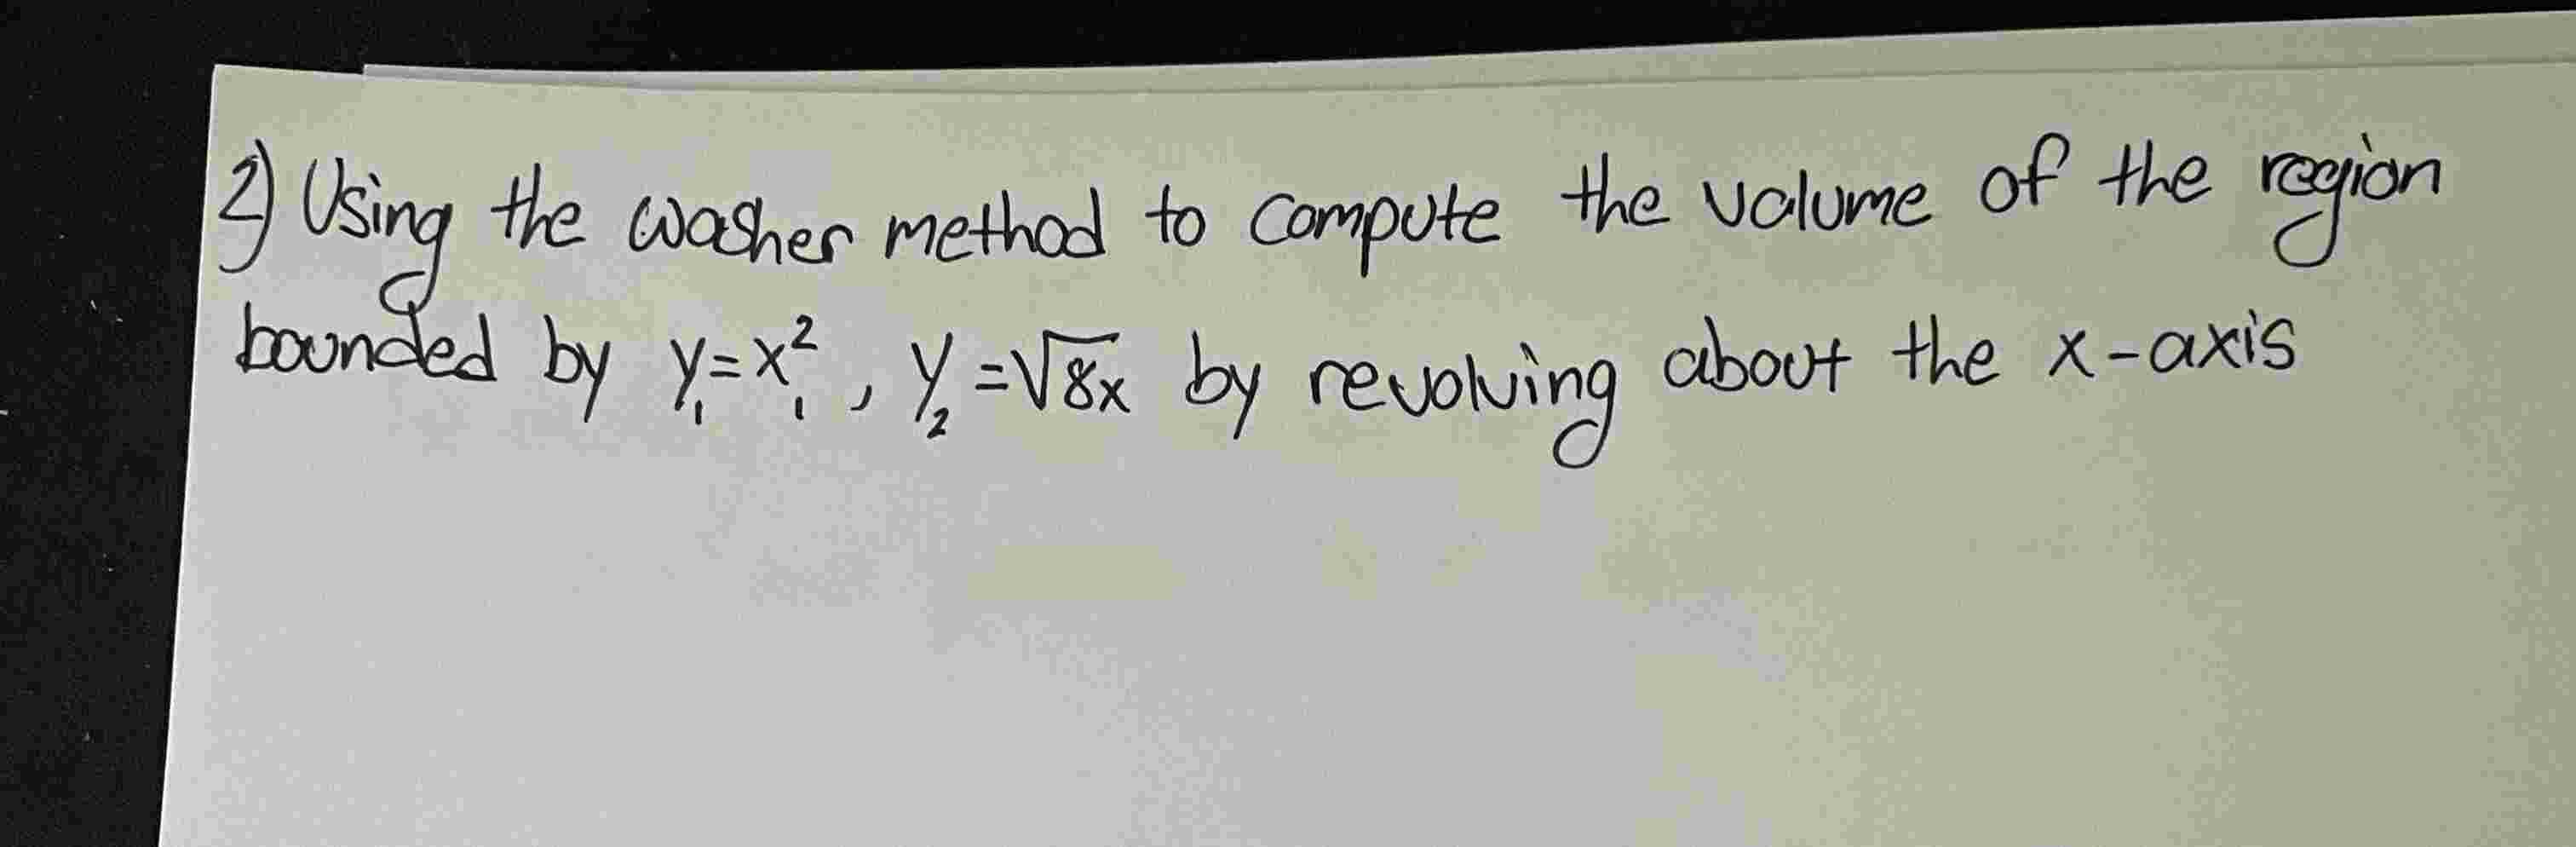 2) Using the washer method to compute the volume of the region
bounded by y₁=x₁², y₂=√8x by revolving about the x-axis